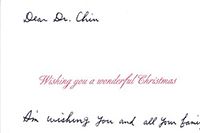 Dear Dr. Chin
Wishing you a wonderful Christmas
Am wishing you and all your fami